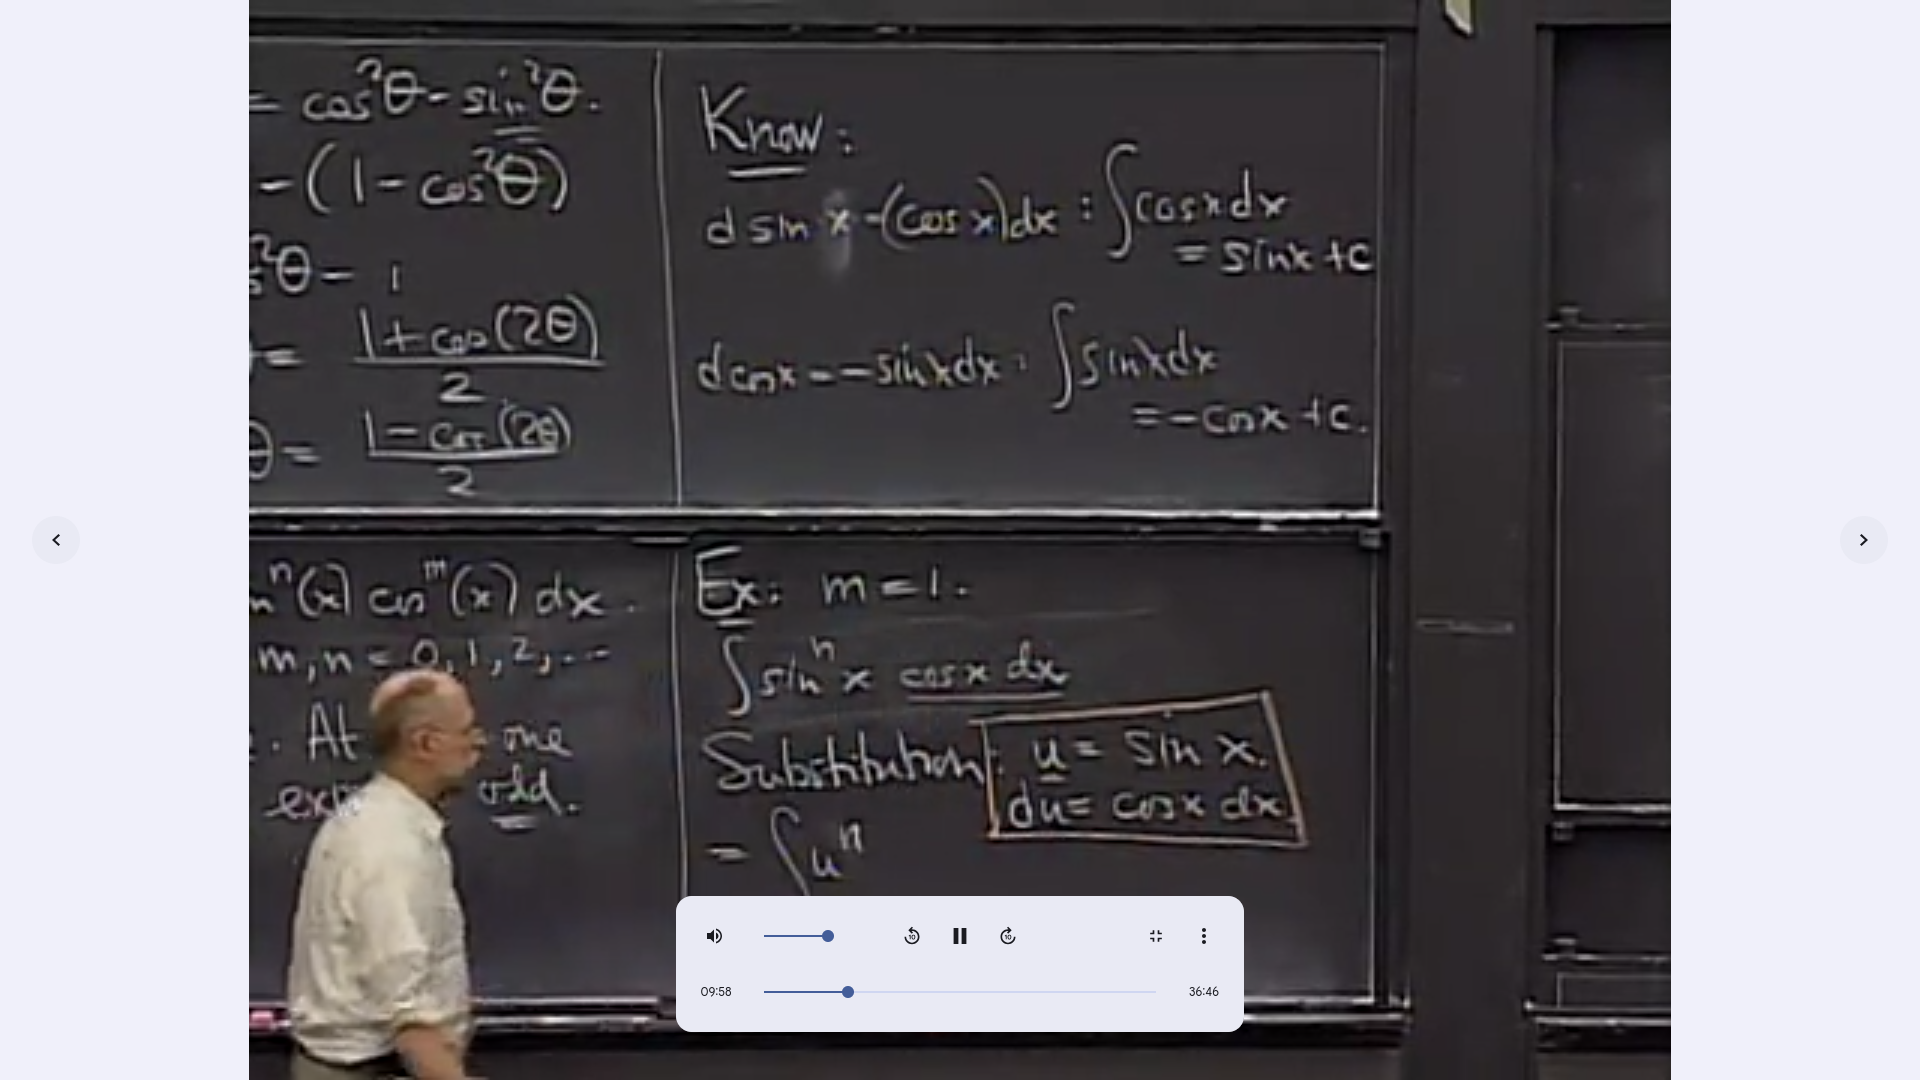 = cos²θ - sin²θ.
- (1 - cos²θ)
s²θ - 1
= 1 + cos(2θ) / 2
θ = 1 - cos(2θ) / 2
Know:
d sin x = (cos x)dx : ∫cos x dx
= sin x + c
d cos x = - sin x dx : ∫sin x dx
= - cos x + c.
n^n(x) cos^m(x) dx.
m, n = 0, 1, 2, ...
. At one
odd.
Ex: m = 1.
∫sin^n x cos x dx
Substitution: u = sin x.
du = cos x dx
= ∫u^n
09:58
36:46